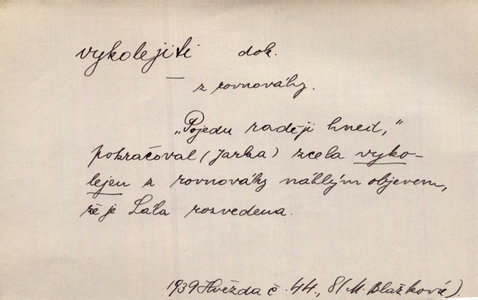 vykolejiti dok.
— z rovnováhy.
„Pojedu raději hned,"
pokračoval (Jarka) zcela vyko-
lejen z rovnováhy náhlým objevem,
že je Láťa rozvedena.
1939 Hvězda č. 44., 8 (M. Blažková)